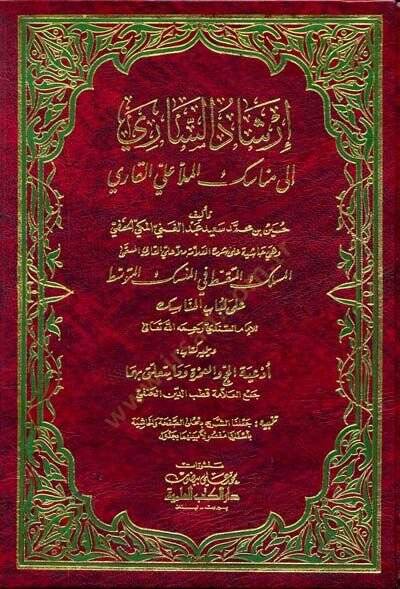 إرشاد الساري
إلى مناسك الملا علي القاري
تأليف
حسين بن محمد سعيد عبد الغني المكي الحنفي
وهي حاشية على شرح العلامة ملا علي القاري المسمى
المسلك المتقسط في المنسك المتوسط
على لباب المناسك
للإمام السندي رحمه الله تعالى
ويليه كتاب:
أدعية الحج والعمرة وما يتعلق بهما
جمع العلامة قطب الدين الحنفي
تنبيه: جعلنا الشرح بأعلى الصفحة والحاشية
بأسفلها مفصولاً بينهما بجدول
منشورات
محمد علي بيضون
دار الكتب العلمية
بيروت - لبنان